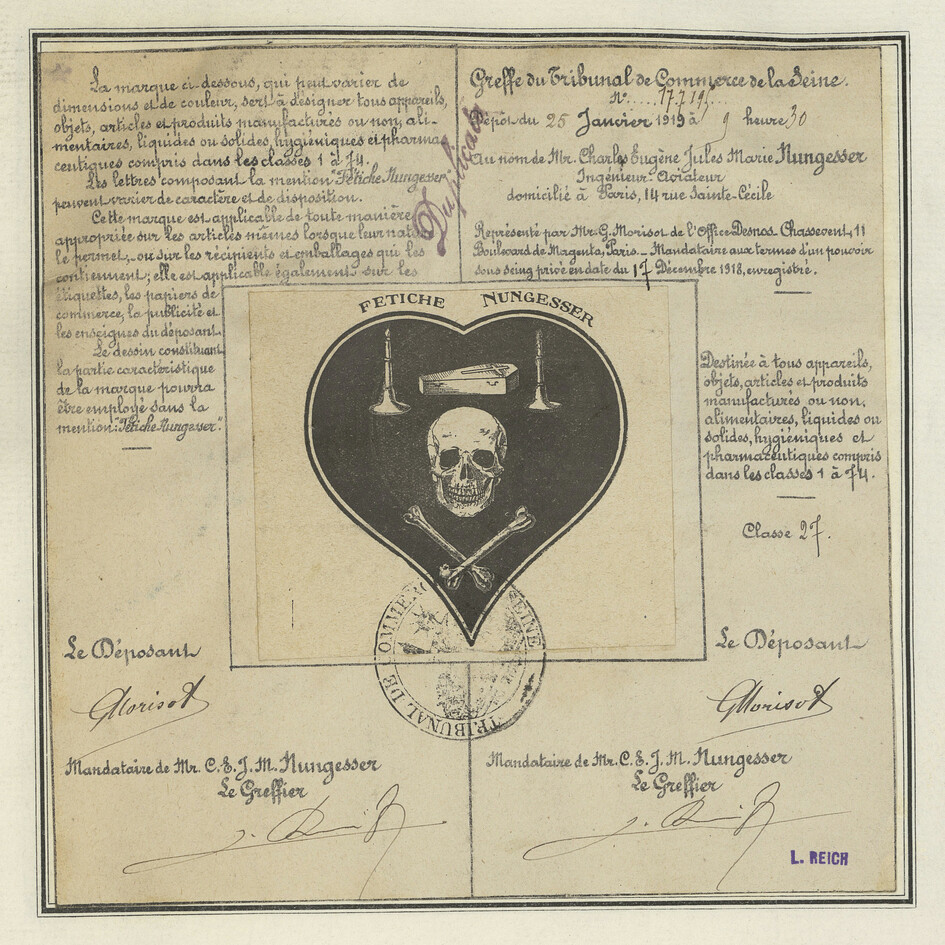 La marque ci-dessous, qui peut varier de
dimensions et de couleur, sert à désigner tous appareils,
objets, articles et produits manufacturés ou non, ali-
mentaires, liquides ou solides, hygiéniques et pharma
ceutiques compris dans les classes 1 à 74.
Les lettres composant la mention "Fétiche Nungesser"
peuvent varier de caractère et de disposition.
Cette marque est applicable de toute manière
appropriée sur les articles mêmes lorsque leur nature
le permet, ou sur les récipients et emballages qui les
contiennent; elle est applicable également sur les
étiquettes, les papiers de
commerce, la publicité et
les enseignes du déposant.
Le dessin constituant
la partie caractéristique
de la marque pourra
être employé sans la
mention: "Fétiche Nungesser".
Duplicata
Greffe du Tribunal de Commerce de la Seine.
Dépôt du 25 Janvier 1919 à 9 heure 30
Au nom de Mr. Charles Eugène Jules Marie Nungesser
Ingénieur-Aviateur
domicilié à Paris, 14 rue Sainte-Cécile
Représenté par Mr. G. Morisot de l'Office Desnos. Chassevent, 11
Boulevard de Magenta, Paris. – Mandataire aux termes d'un pouvoir
sous seing privé en date du 17 Décembre 1918, enregistré.
FETICHE NUNGESSER
Destinée à tous appareils,
objets, articles et produits
manufacturés ou non,
alimentaires, liquides ou
solides, hygiéniques et
pharmaceutiques compris
dans les classes 1 à 74.
Classe 27.
TRIBUNAL DE COMMERCE SEINE
Le Déposant
GMorisot
Mandataire de Mr. C. E. J. M. Nungesser
Le Greffier
Le Déposant
GMorisot
Mandataire de Mr. C. E. J. M. Nungesser
Le Greffier
L. REICH